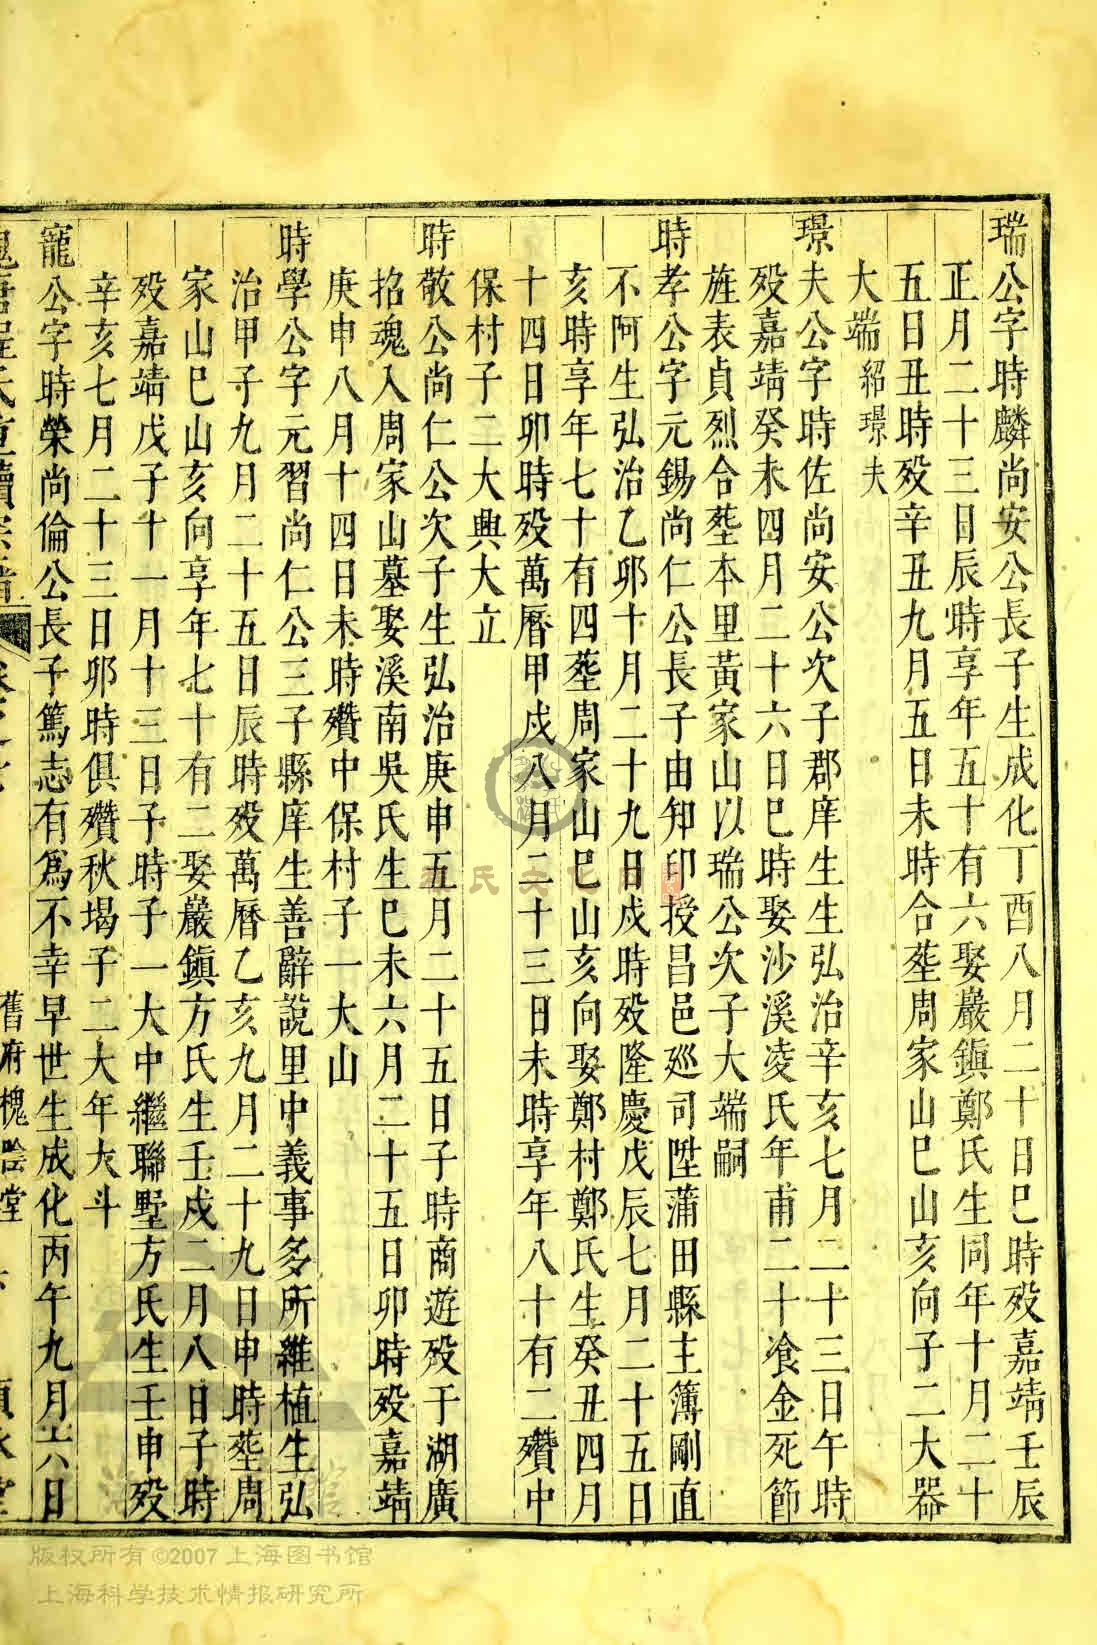 瑞公字時麟尚安公長子生成化丁酉八月二十日巳時殁嘉靖壬辰
正月二十三日辰時享年五十有六娶巖鎮鄭氏生同年十月二十
五日丑時殁辛丑九月五日未時合塟周家山巳山亥向子二大器
大端紹璟夫
璟夫公字時佐尚安公次子郡庠生生弘治辛亥七月二十三日午時
殁嘉靖癸未四月二十六日巳時娶沙溪凌氏年甫二十飡金死節
旌表貞烈合塟本里黃家山以瑞公次子大端嗣
時孝公字元錫尚仁公長子由知印授昌邑廵司陞蒲田縣主簿剛直
不阿生弘治乙卯十月二十九日戍時殁隆慶戊辰七月二十五日
亥時享年七十有四塟周家山巳山亥向娶鄭村鄭氏生癸丑四月
十四日卯時殁萬曆甲戍八月二十三日未時享年八十有二殯中
保村子二大興大立
時敬公尚仁公次子生弘治庚申五月二十五日子時商遊殁于湖廣
招魂入周家山墓娶溪南吳氏生巳未六月二十五日卯時殁嘉靖
庚申八月十四日未時殯中保村子一大山
時學公字元習尚仁公三子縣庠生善辭說里中義事多所維植生弘
治甲子九月二十五日辰時殁萬曆乙亥九月二十九日申時塟周
家山巳山亥向享年七十有二娶巖鎮方氏生壬戍二月八日子時
殁嘉靖戊子十一月十三日子時子一大中繼聯墅方氏生壬申殁
辛亥七月二十三日卯時俱殯秋塌子二大年大斗
寵公字時榮尚倫公長子篤志有爲不幸早世生成化丙午九月六日
舊府槐陰堂
版权所有©2007上海图书馆
上海科学技术情报研究所